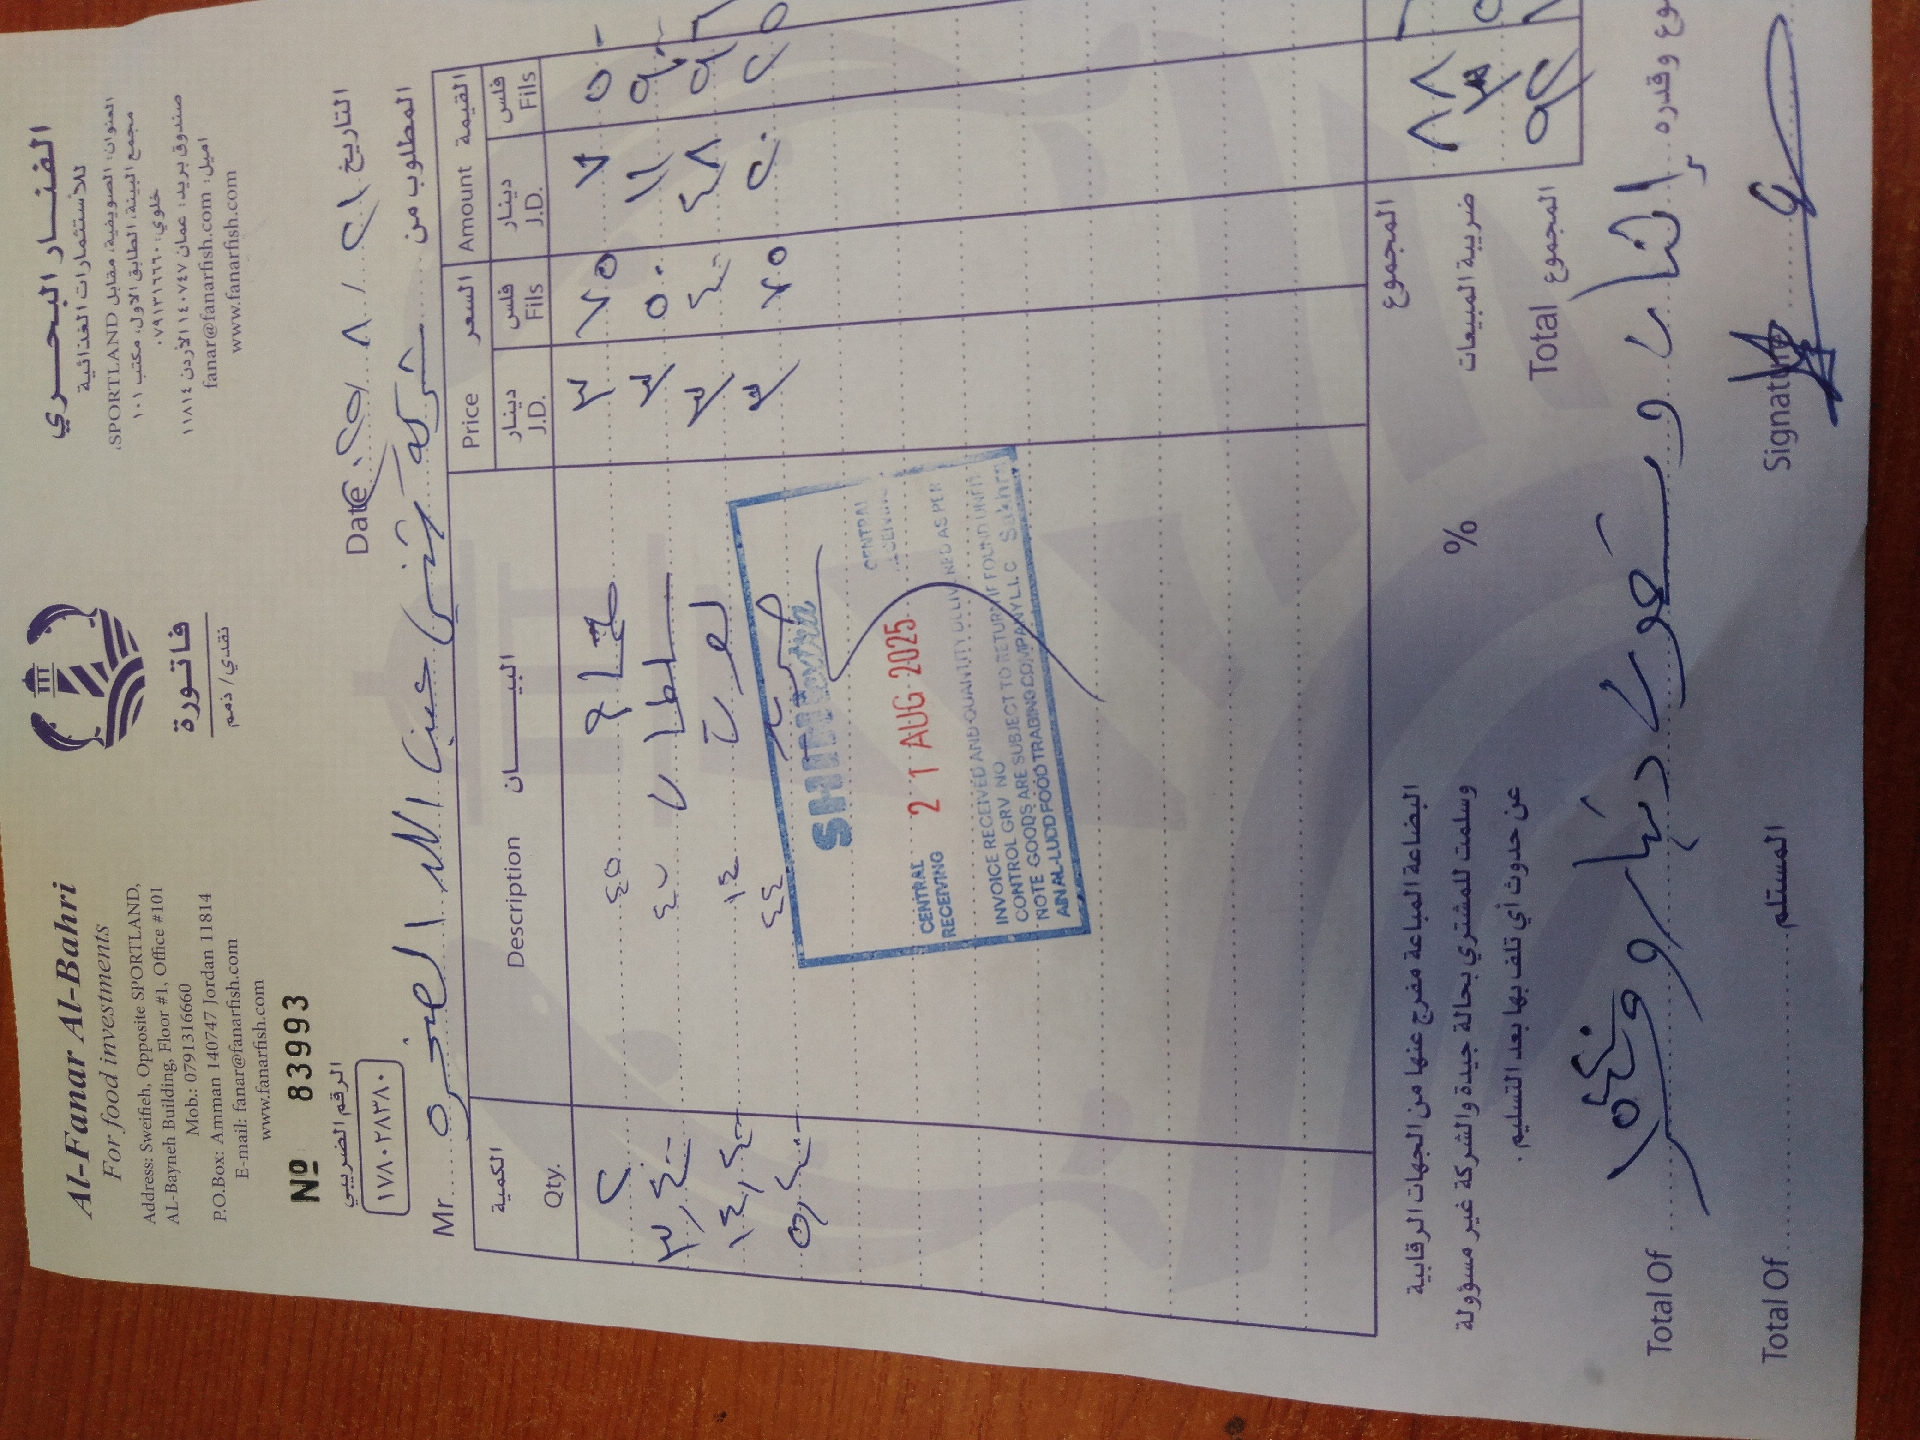 Al-Fanar Al-Bahri
For food investments
Address: Sweifieh, Opposite SPORTLAND,
AL-Bayneh Building, Floor #1, Office #101
Mob.: 0791316660
P.O.Box: Amman 140747 Jordan 11814
E-mail: fanar@fanarfish.com
www.fanarfish.com
فاتورة
نقدي / ذمم
الفنار البحري
للاستثمارات الغذائية
العنوان: الصويفية، مقابل SPORTLAND،
مجمع البينة، الطابق الاول، مكتب ١٠١
خلوي: ٠٧٩١٣١٦٦٦٠
صندوق بريد: عمان ١٤٠٧٤٧ الأردن ١١٨١٤
اميل: fanar@fanarfish.com
www.fanarfish.com
Nº 83993
الرقم الضريبي
١٧٨٠٢٨٣٨٠
Date ٢٠٢٥ / ٨ / ٢١ التاريخ
Mr المطلوب من
شركة عين اللد الصخره
الكمية Qty.
البيـــان Description
السعر Price
دينار J.D. فلس Fils
القيمة Amount
دينار J.D. فلس Fils
٢ ٤٥ ٣ ٧٥ ٧ ٥
٣,٤٠ سلطان ٣ ٥٠ ١١ ٩٠
١٤,٢٠ ١٤ ٣ ٤٠ ٤٨
٥,٤٠ ٤٤ ٣ ٧٥ ٢٠
SHIP
CENTRAL
CENTRAL
RECEIVING
21 AUG 2025
INVOICE RECEIVED AND QUANTITY DELIVERED AS PER
CONTROL GRV NO
NOTE GOODS ARE SUBJECT TO RETURN IF FOUND UNFIT
AIN AL-LUDD FOOD TRADING COMPANY L.L.C Sakhra
البضاعة المباعة مفرج عنها من الجهات الرقابية
وسلمت للمشتري بحالة جيدة والشركة غير مسؤولة
عن حدوث أي تلف بها بعد التسليم.
المجموع ٨٨
% ضريبة المبيعات
Total المجموع ٩٢
Total Of وع وقدره
اثنان وتسعون دينار و
Total Of المستلم
Signature